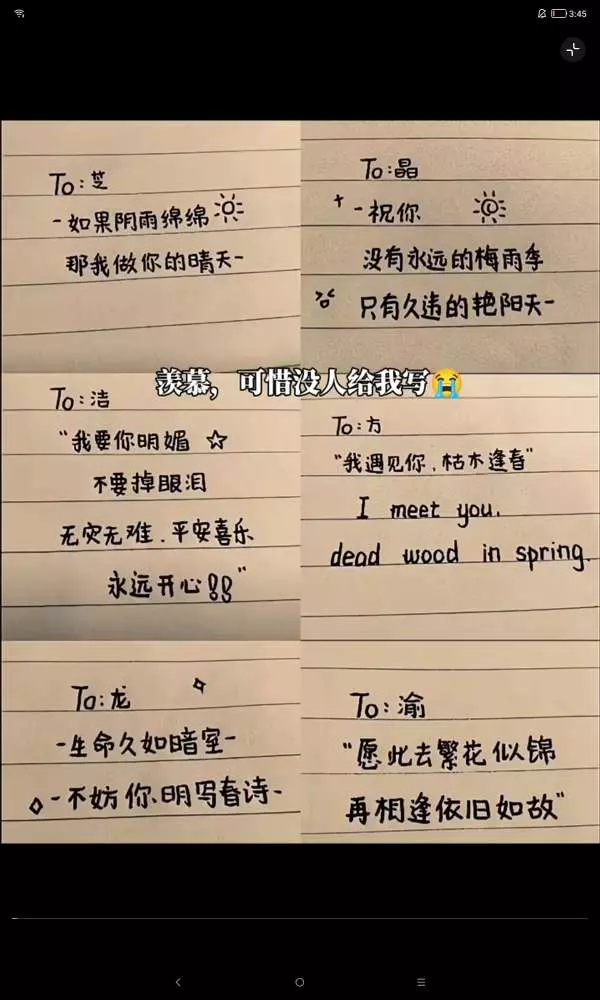 3:45
To:芝
-如果阴雨绵绵
那我做你的晴天-
To:晶
-祝你
没有永远的梅雨季
只有久违的艳阳天-
羡慕，可惜没人给我写😭
To:洁
"我要你明媚☆
不要掉眼泪
无灾无难.平安喜乐
永远开心!!"
To:方
"我遇见你,枯木逢春"
I meet you.
dead wood in spring.
To:龙
-生命久如暗室-
-不妨你明写春诗-
To:渝
"愿此去繁花似锦
再相逢依旧如故"